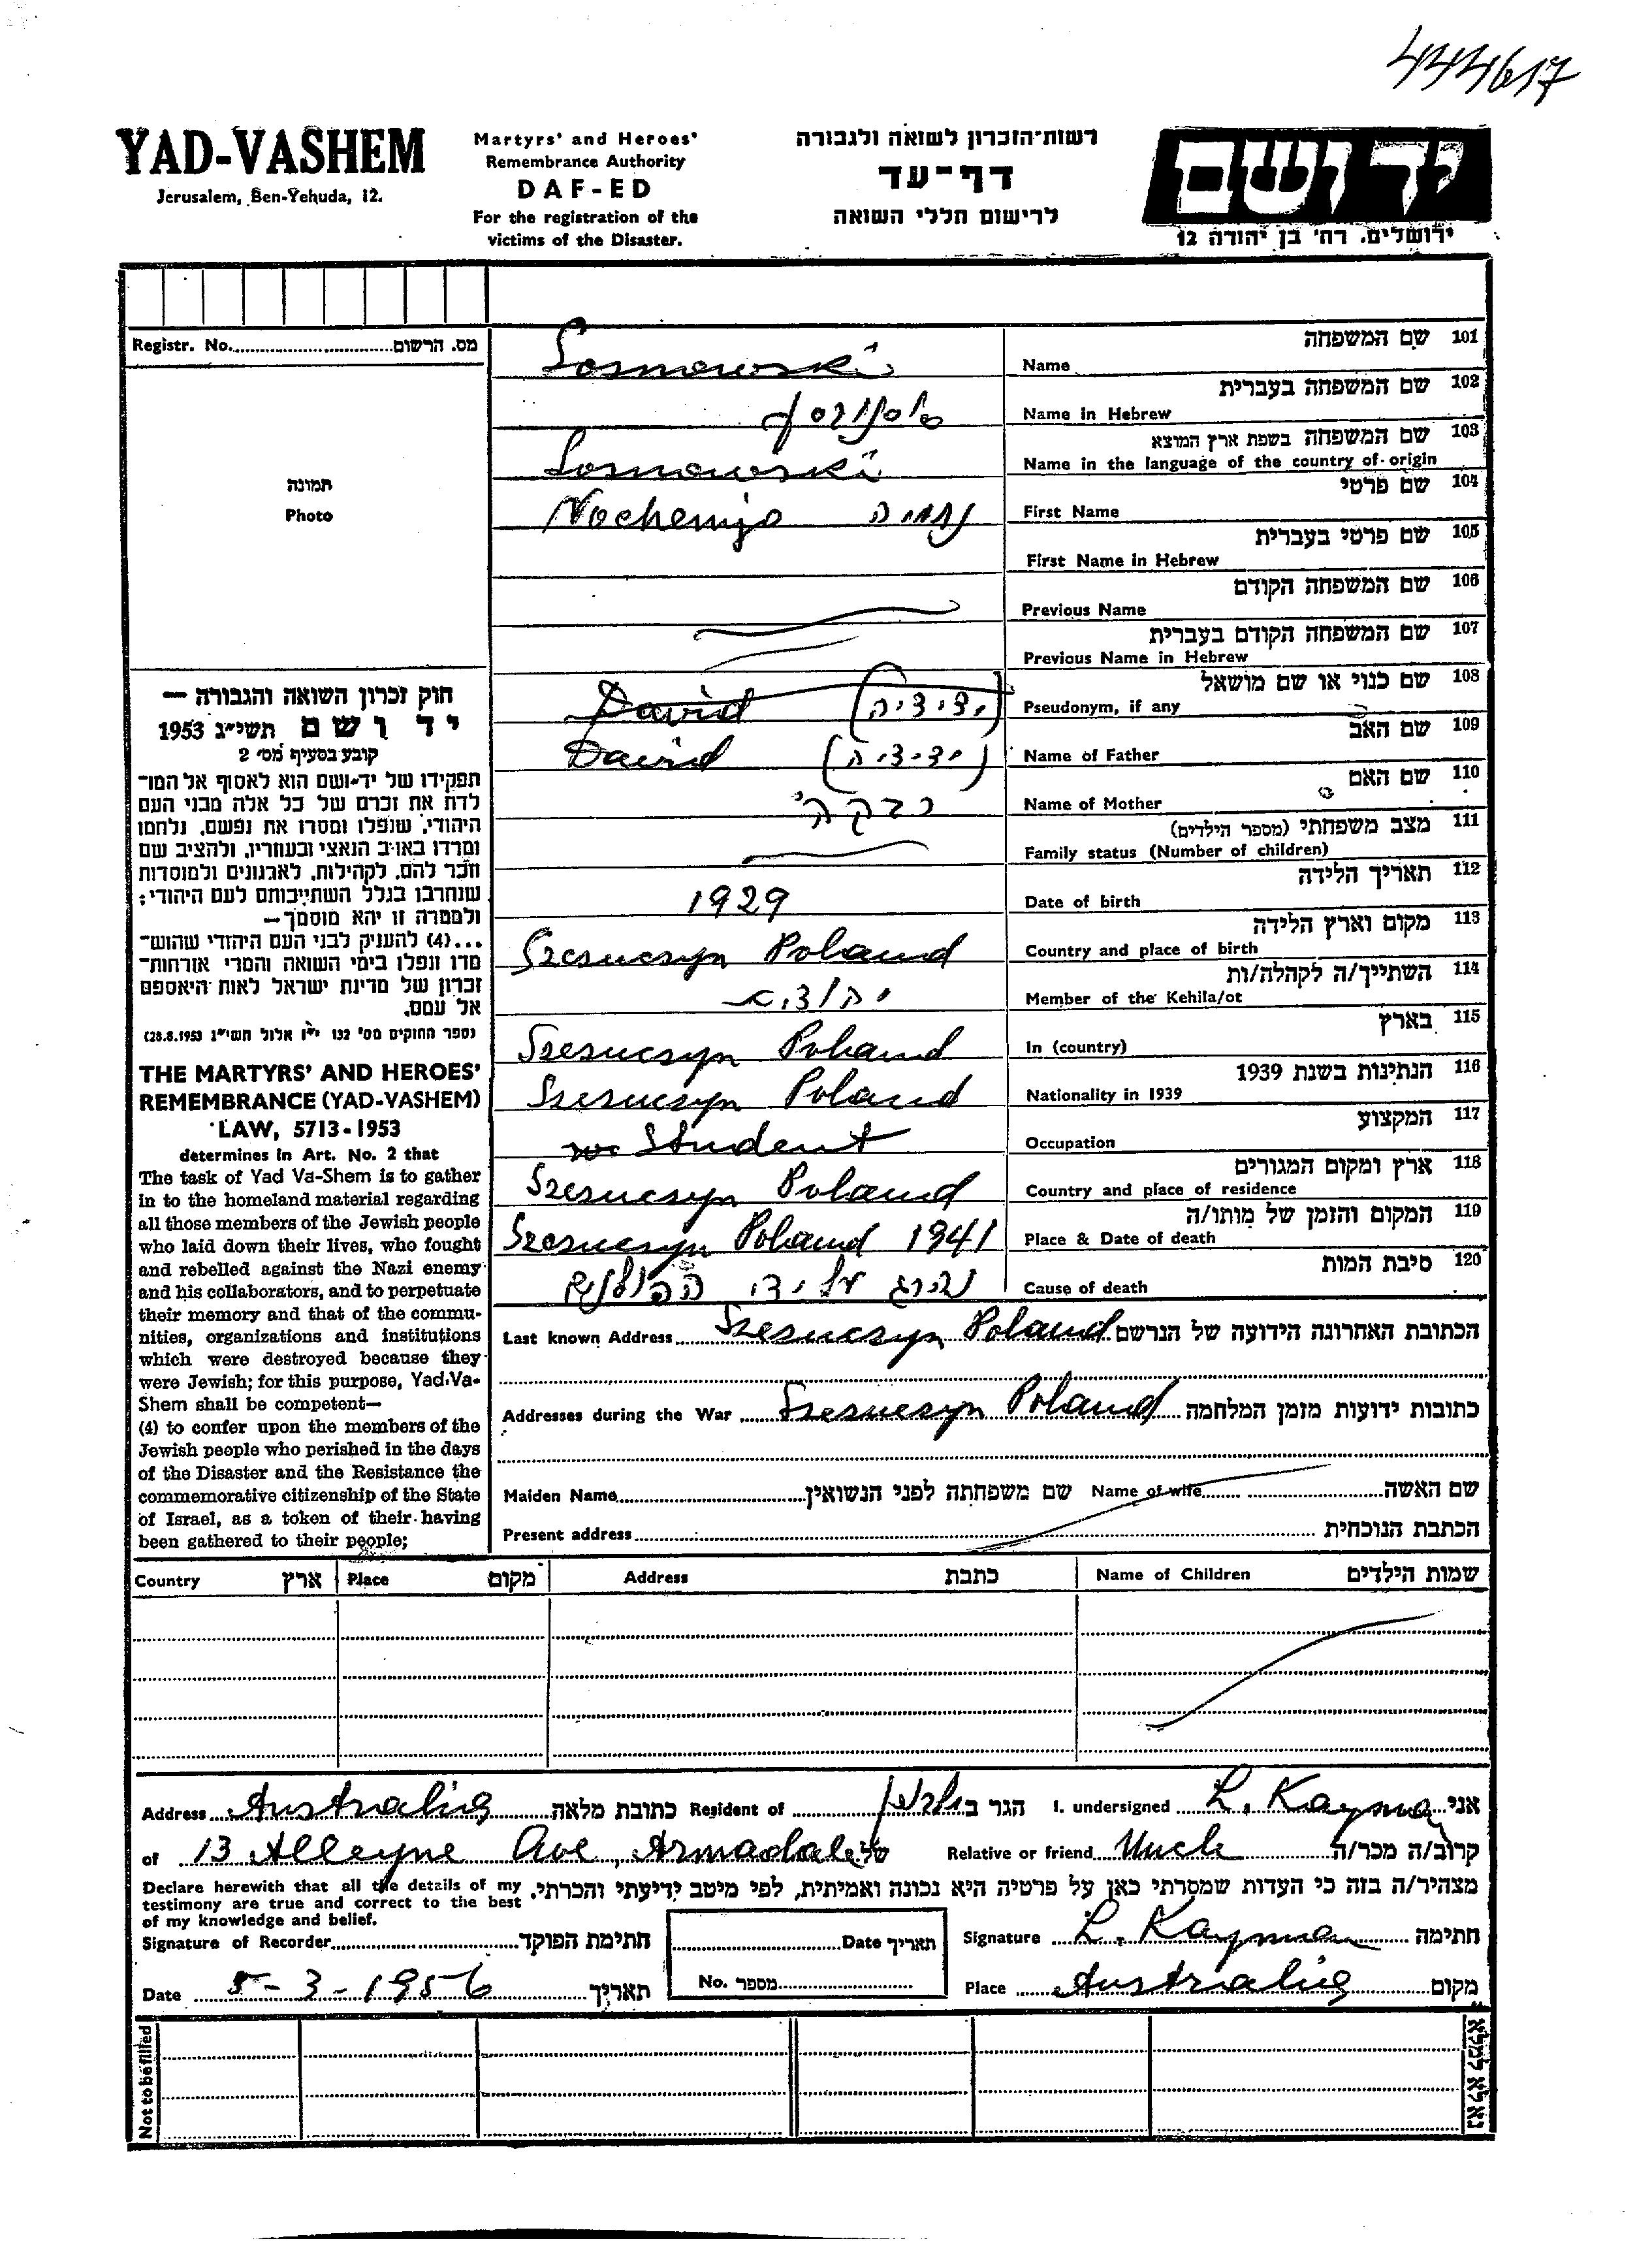 444617
YAD-VASHEM
Jerusalem, Ben-Yehuda, 12.
Martyrs' and Heroes'
Remembrance Authority
DAF-ED
For the registration of the
victims of the Disaster.
רשות־הזכרון לשואה ולגבורה
דף־עד
לרישום חללי השואה
יד ושם
ירושלים. רח' בן יהודה 12
Registr. No. מס. הרשום
תמונה
Photo
חוק זכרון השואה והגבורה —
יד ושם תשי״ג 1953
קובע בסעיף מס׳ 2
תפקידו של יד־ושם הוא לאסוף אל המו־
לדת את זכרם של כל אלה מבני העם
היהודי, שנפלו ומסרו את נפשם, נלחמו
ומרדו באויב הנאצי ובעוזריו, ולהציב שם
וזכר להם, לקהילות, לארגונים ולמוסדות
שנחרבו בגלל השתייכותם לעם היהודי;
ולמטרה זו יהא מוסמך—
...(4) להעניק לבני העם היהודי שהוש־
מדו ונפלו בימי השואה והמרי אזרחות־
זכרון של מדינת ישראל לאות היאספם
אל עמם.
(ספר החוקים מס׳ 132 י״ז אלול תשי״ג 28.8.1953)
THE MARTYRS' AND HEROES'
REMEMBRANCE (YAD-VASHEM)
LAW, 5713-1953
determines in Art. No. 2 that
The task of Yad Va-Shem is to gather
in to the homeland material regarding
all those members of the Jewish people
who laid down their lives, who fought
and rebelled against the Nazi enemy
and his collaborators, and to perpetuate
their memory and that of the commu-
nities, organizations and institutions
which were destroyed because they
were Jewish; for this purpose, Yad-Va-
Shem shall be competent—
(4) to confer upon the members of the
Jewish people who perished in the days
of the Disaster and the Resistance the
commemorative citizenship of the State
of Israel, as a token of their having
been gathered to their people;
Sosnowski Name שם המשפחה 101
סוסנובסקי Name in Hebrew שם המשפחה בעברית 102
Sosnowski Name in the language of the country of origin שם המשפחה בשפת ארץ המוצא 103
Nochemja נחמיה First Name שם פרטי 104
First Name in Hebrew שם פרטי בעברית 105
Previous Name שם המשפחה הקודם 106
Previous Name in Hebrew שם המשפחה הקודם בעברית 107
David (ידידיה) Pseudonym, if any שם כנוי או שם מושאל 108
David (ידידיה) Name of Father שם האב 109
רבקה Name of Mother שם האם 110
Family status (Number of children) מצב משפחתי (מספר הילדים) 111
1929 Date of birth תאריך הלידה 112
Szcsucsyn Poland Country and place of birth מקום וארץ הלידה 113
Member of the Kehila/ot השתייך/ה לקהלה/ות 114
Szesucsyn Poland In (country) בארץ 115
Szesucsyn Poland Nationality in 1939 הנתינות בשנת 1939 116
Student Occupation המקצוע 117
Szesucsyn Poland Country and place of residence ארץ ומקום המגורים 118
Szesucsyn Poland 1941 Place & Date of death המקום והזמן של מותו/ה 119
נהרג על ידי הפולנים Cause of death סיבת המות 120
Last known Address Szesucsyn Poland הכתובת האחרונה הידועה של הנרשם
Addresses during the War Szesucsyn Poland כתובות ידועות מזמן המלחמה
Maiden Name שם משפחתה לפני הנשואין Name of wife שם האשה
Present address הכתבת הנוכחית
Country ארץ Place מקום Address כתבת Name of Children שמות הילדים
Address Australia כתובת מלאה Resident of הגר ב I. undersigned L. Kayman אני
of 13 Alleyne Ave, Armadale של Relative or friend Uncle קרוב/ה מכר/ה
Declare herewith that all the details of my
testimony are true and correct to the best
of my knowledge and belief.
מצהיר/ה בזה כי העדות שמסרתי כאן על פרטיה היא נכונה ואמיתית, לפי מיטב ידיעתי והכרתי.
Signature of Recorder חתימת הפוקד Date תאריך Signature L. Kayman חתימה
Date 5-3-1956 תאריך No. מספר Place Australia מקום
Not to be filled נא לא למלא